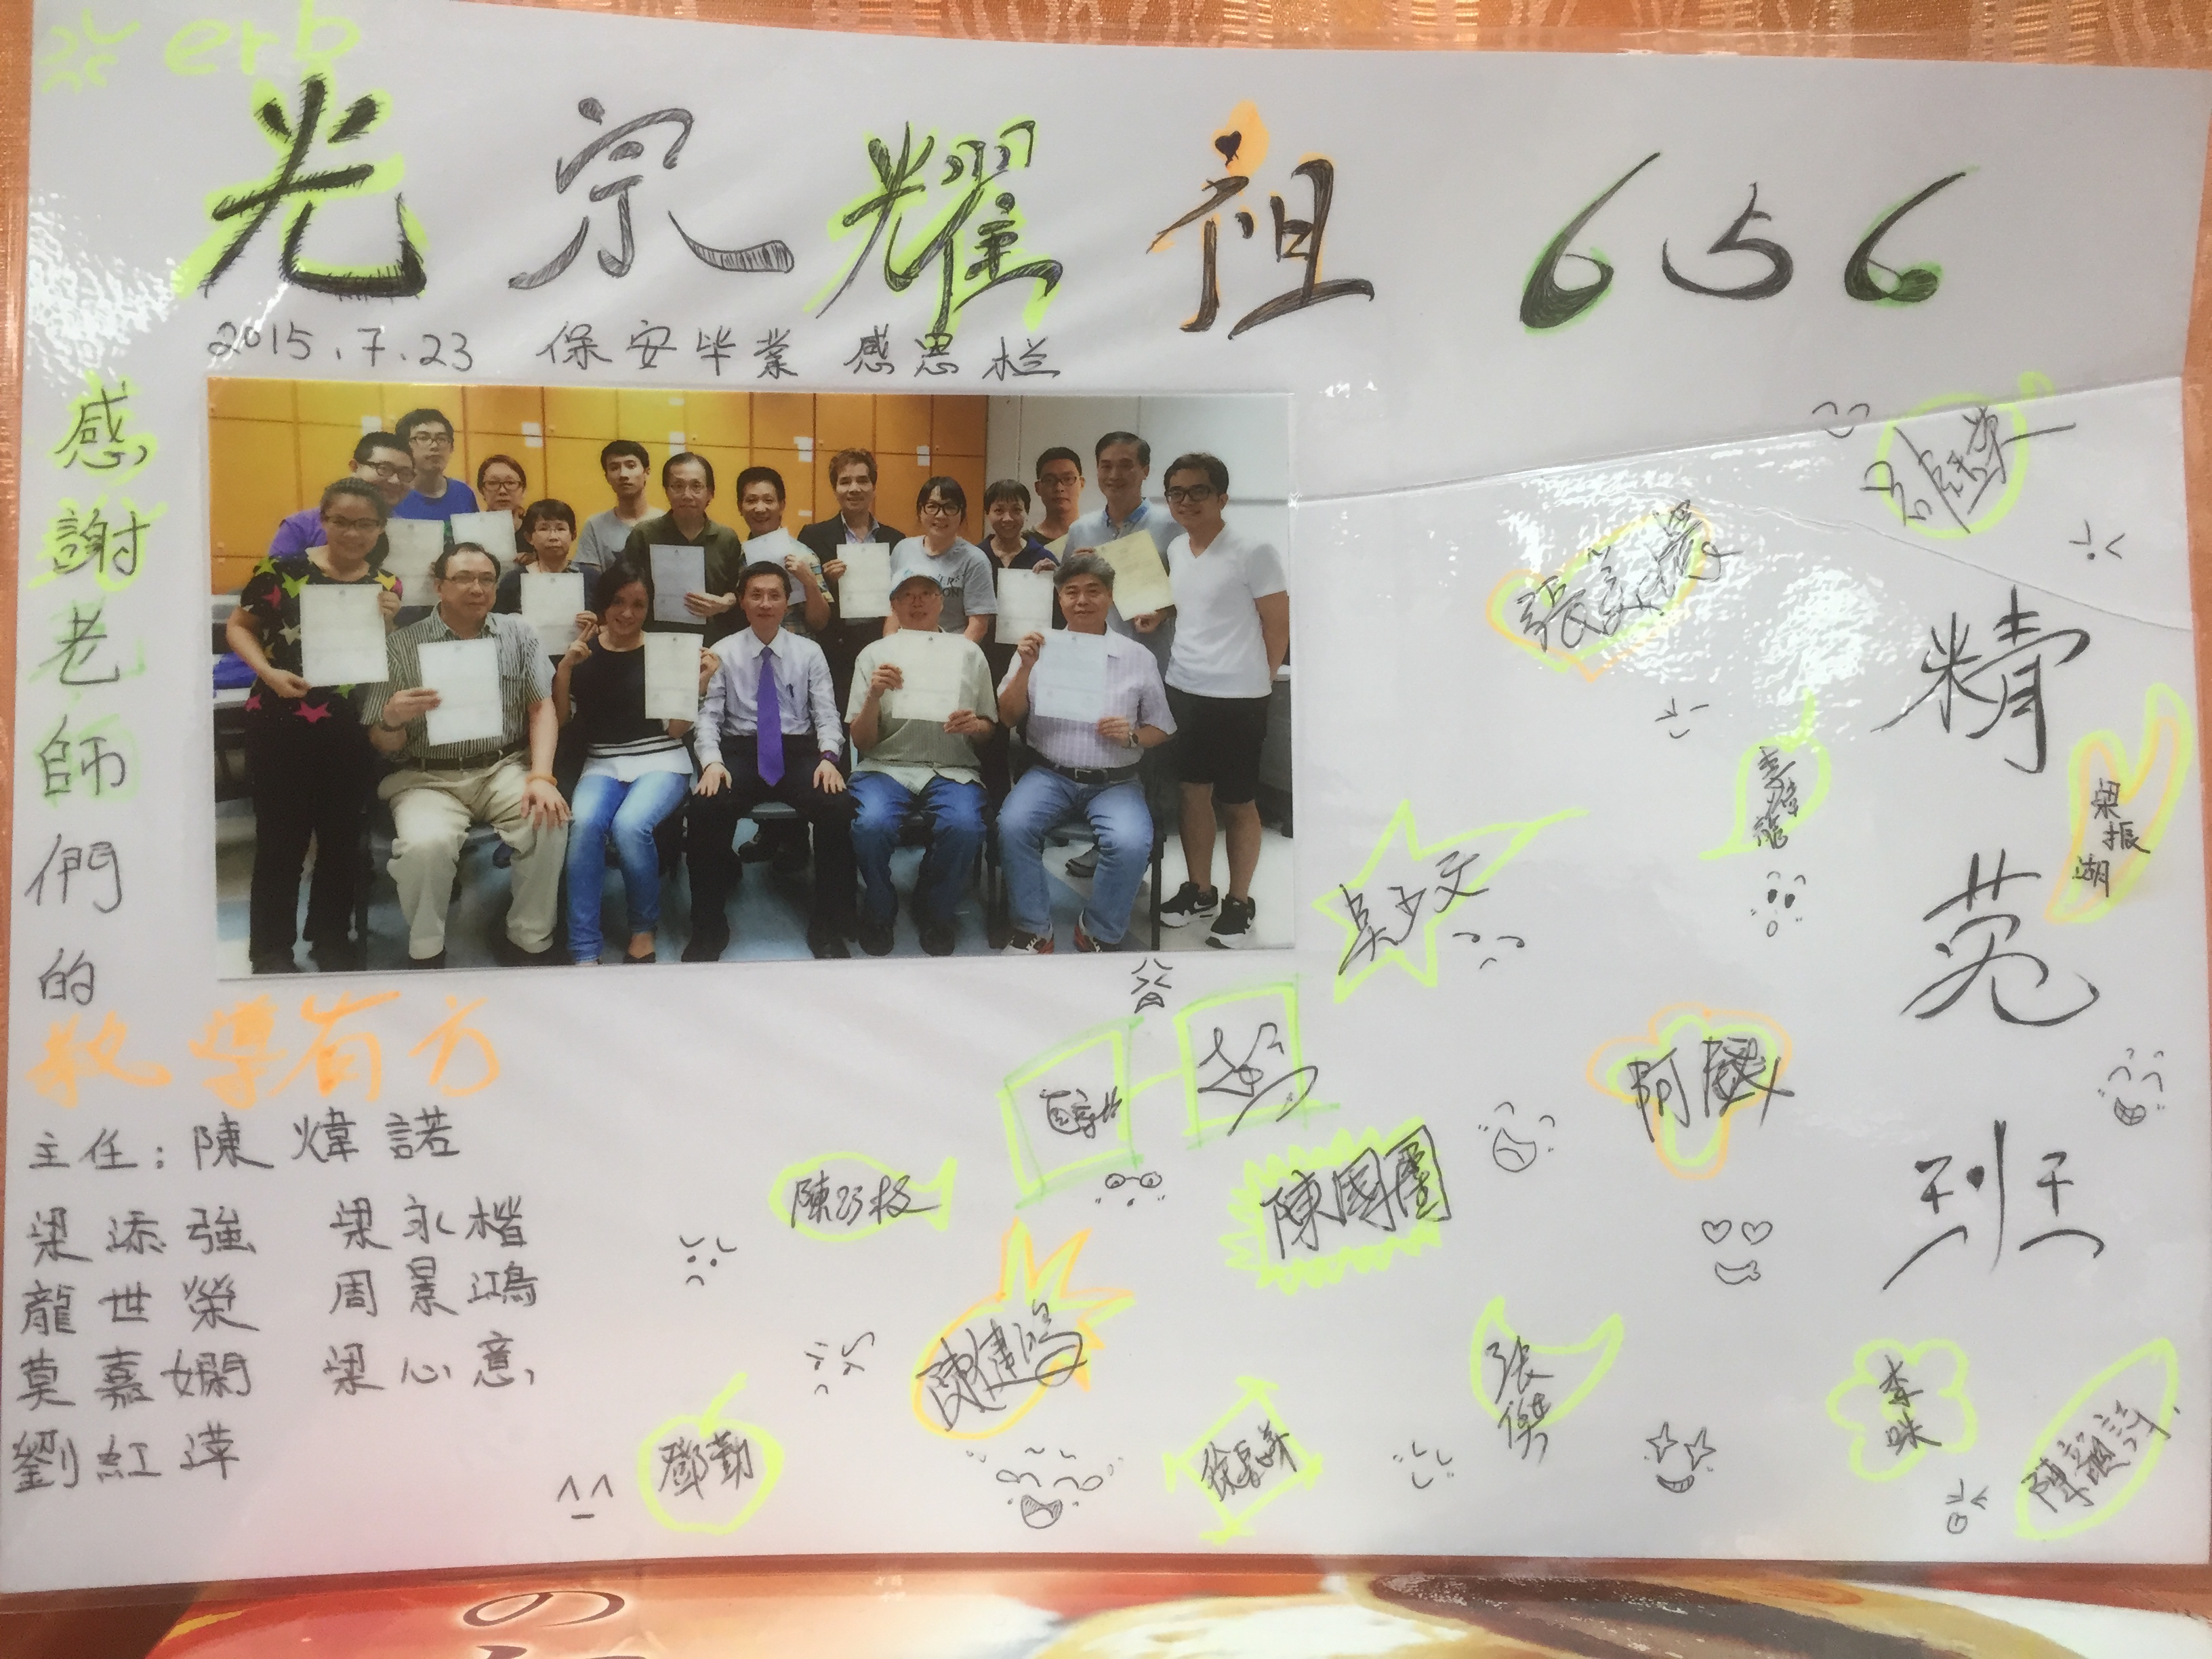 erb
光宗耀祖 656
2015.7.23 保安毕業 感恩栏
感謝老師們的
教導有方
主任：陳煒諾
梁添強 梁永楷
龍世榮 周景鴻
莫嘉嫻 梁心意
劉紅萍
精英班
梁振湖
吳少文
阿威
陳巧枝
陳國團
陳健鴻
張傑
鄧勤
李咪
の